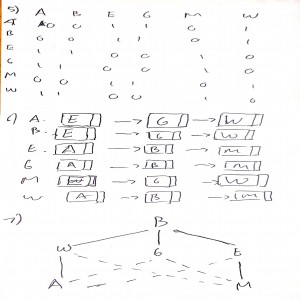 5) A B E G M W
A 0 0 1 1 0 1
B 0 0 1 1 0 1
E 1 1 0 0 1 0
G 1 1 0 0 1 0
M 0 0 1 1 0 1
W 1 1 0 0 1 0
6) A. E → G → W
B. E → G → W
E. A → B → M
G A → B → M
M → G → W
W A → B → M
7) B
W G E
A M